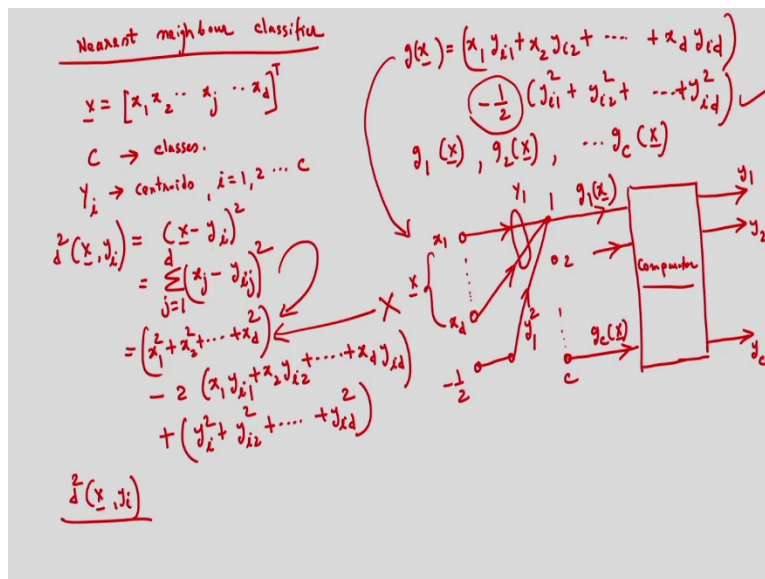 Nearest neighbour classifier
x = [x₁ x₂ ·· x_j ·· x_d]ᵀ
C → classes.
Y_i → centroids, i = 1, 2 ··· c
d²(x, y_i) = (x - y_i)²
= ∑_{j=1}^{d} (x_j - y_ij)²
= (x₁² + x₂² + ··· + x_d²)
- 2 (x₁ y_i1 + x₂ y_i2 + ···· + x_d y_id)
+ (y_i² + y_i2² + ···· + y_id²)
d²(x, y_i)
g(x) = (x₁ y_i1 + x₂ y_i2 + ···· + x_d y_id)
- 1/2 (y_i1² + y_i2² + ··· + y_id²)
g₁(x), g₂(x), ··· g_c(x)
X
x
x₁
x_d
-1/2
Y₁
y₁²
1
2
C
g₁(x)
g_c(x)
Comparator
y₁
y₂
y_c